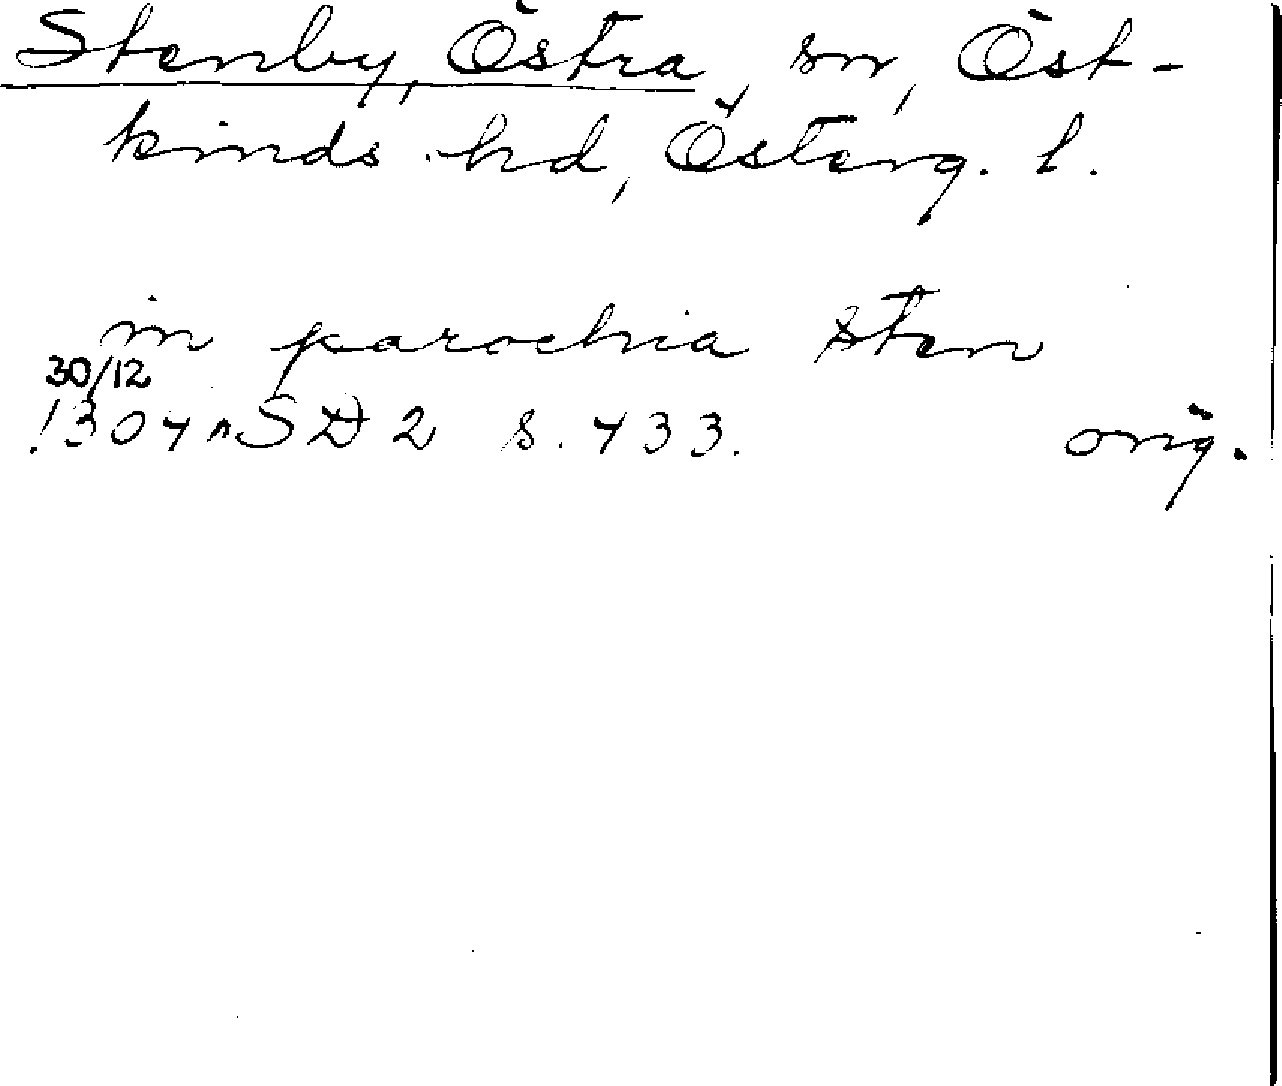 Stenby, Östra, sn, Öst-
kinds hd, Österg. l.
in parochia sten
30/12
1304 SD 2 s. 433. orig.